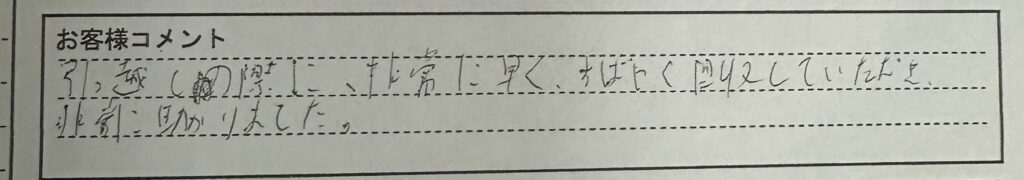 お客様コメント
引っ越しの際に、非常に早く、すばやく回収していただき、
非常に助かりました。